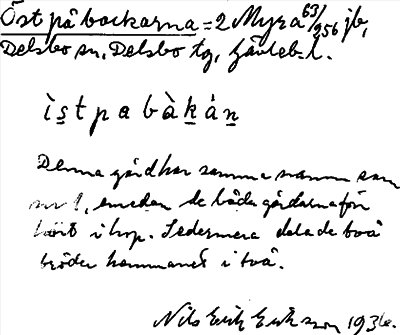 Öst på backarna = 2 Myra 63/256 jb,
Delsbo sn, Delsbo tg, Gävleb. l.
ìs̱tpabàḵáṉ
Denna gård har samma namn som
nr 1, emedan de båda gårdarna för
hört i hop. Sedermera delade två
bröder hemmanet i två.
Nils Erik Eriksson 1936.